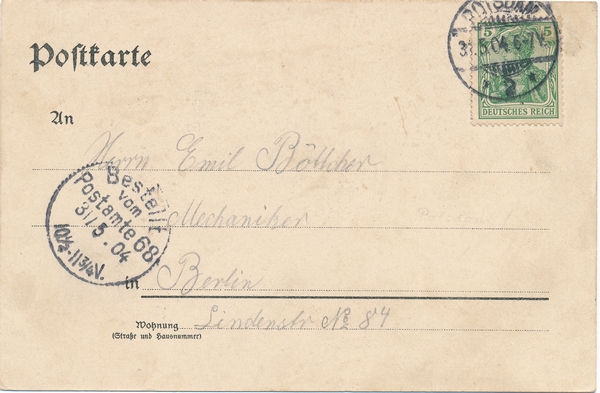 Postkarte
POTSDAM
31.5.04.6-7V.
2
5 5
DEUTSCHES REICH
An
Herrn Emil Böttcher
Bestellt
vom
Postamte 68
31/5.04
10½-11¾V.
Mechaniker
in Berlin
Wohnung
(Straße und Hausnummer)
Lindenstr № 84